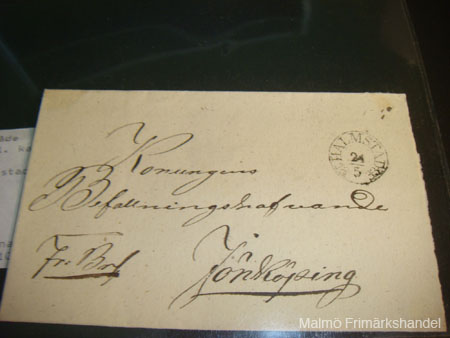 HALMSTAD
24
5
Konungens
Befallningshafvande
Fr. Bref
Jönköping
Malmö Frimärkshandel